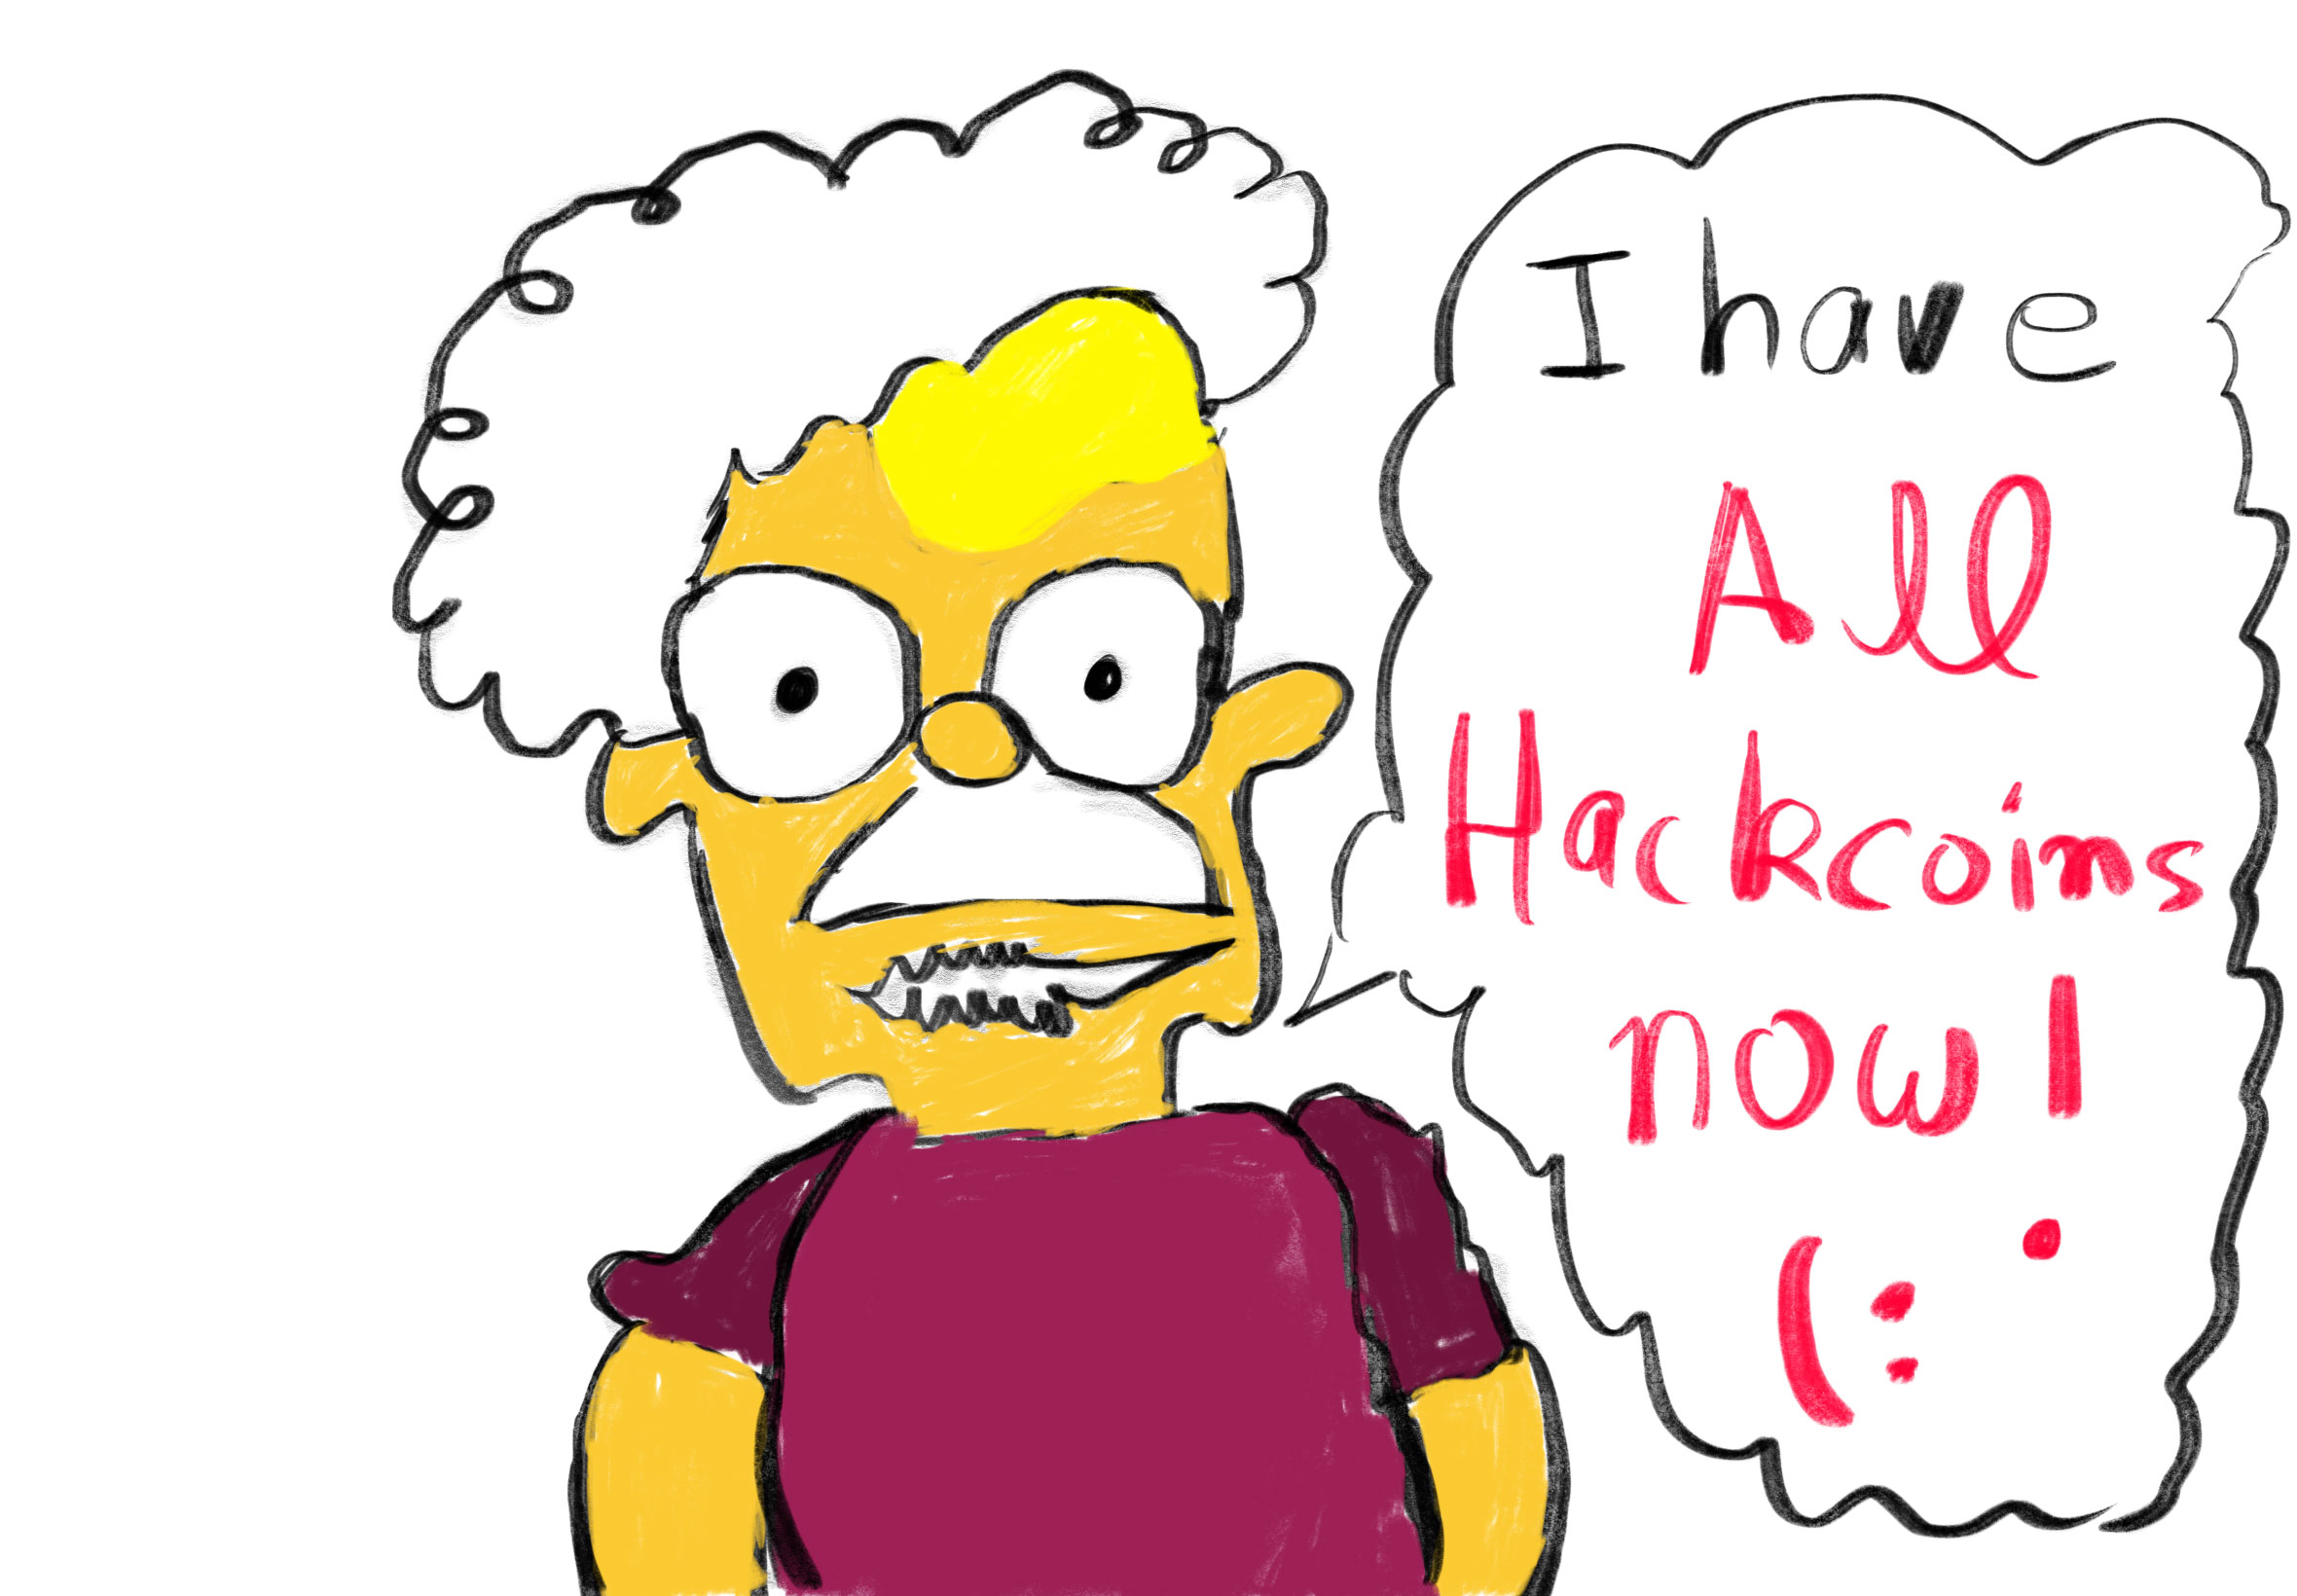 I have
All
Hackcoins
now!
(: